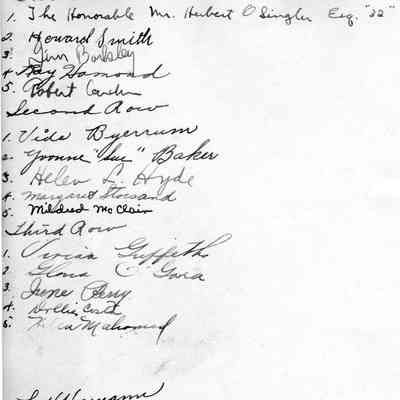 1. The Honorable Mr. Herbert O Singler Esq. "32"
2. Howard Smith
3. Jim Barkley
4. Ray Hamond
5. Robert
Second Row
1. Vida Byerrum
2. Yvonne "Sue" Baker
3. Helen L. Hyde
4. Margaret Stoesand
5. Mildred McClain
Third Row
1. Vivian Griffith
2. Gloria O'Gara
3. June Perry
4. Dollie Costa
5. Mahomed